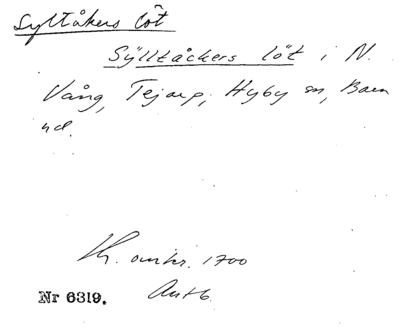 Syltåkers löt
Sÿlltåckers löt i N.
Vång, Tejarp, Hyby sn, Bara
hd.
Kr. omkr. 1700
Nr 6319. Antb.